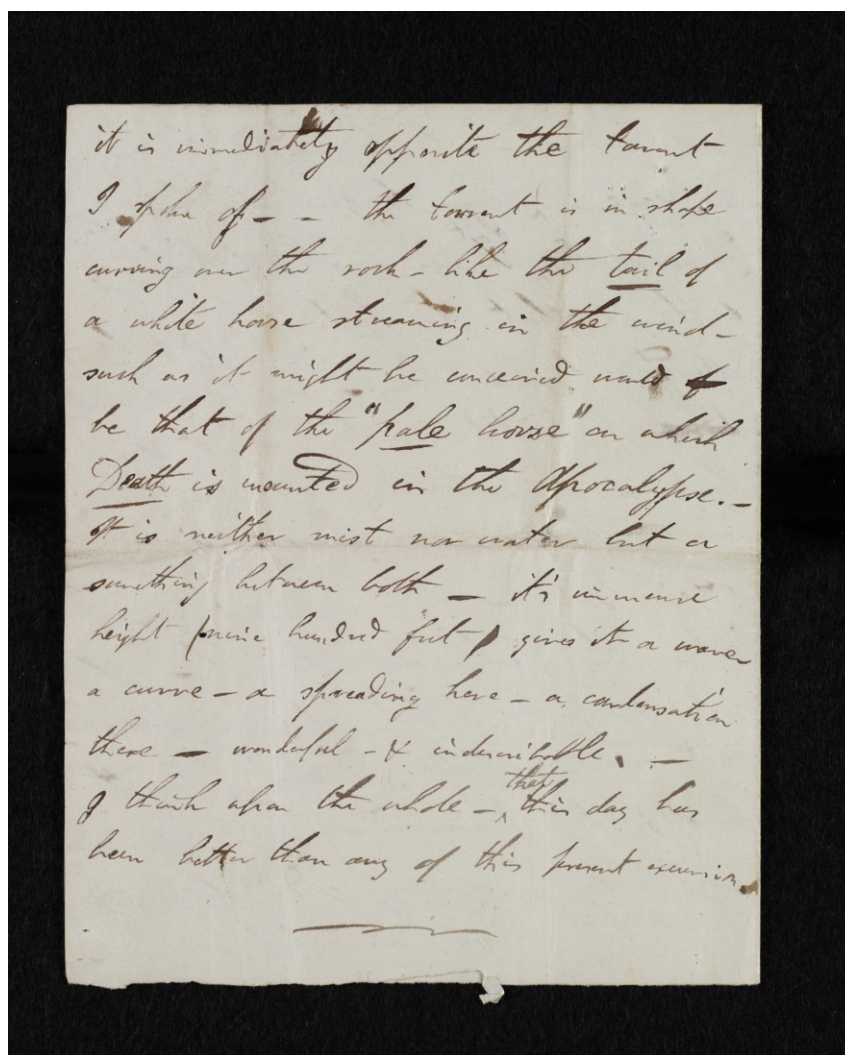 it is immediately opposite the torrent
I spoke of – – the torrent is in shape
curving over the rock – like the tail of
a white horse streaming in the wind –
such as it might be conceived would
be that of the "pale horse" on which
Death is mounted in the Apocalypse. –
It is neither mist nor water but a
something between both – it's immense
height (nine hundred feet) gives it a wave
a curve – a spreading here – a condensation
there – wonderful – & indescribable. –
I think upon the whole – that this day has
been better than any of this present excursion.